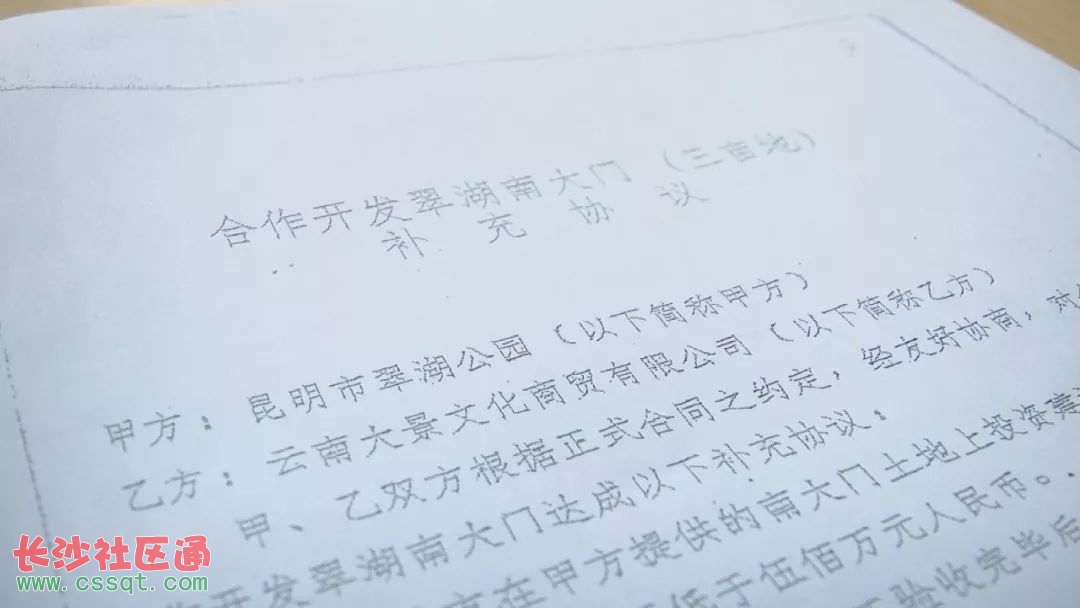 合作开发翠湖南大门（三亩地）
补 充 协 议
甲方：昆明市翠湖公园（以下简称甲方）
乙方：云南大景文化商贸有限公司（以下简称乙方）
甲、乙双方根据正式合同之约定，经友好协商，对
作开发翠湖南大门达成以下补充协议：
在甲方提供的南大门土地上投资
低于伍佰万元人民币。
验收完毕后
长沙社区通
www.cssqt.com